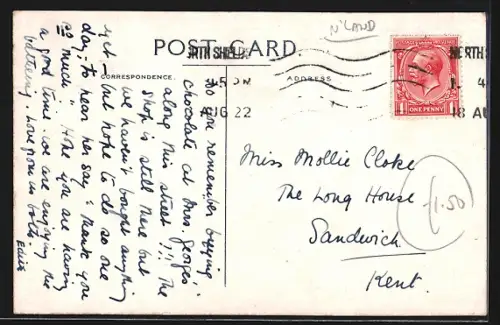 N'LAND
POST CARD.
CORRESPONDENCE.
ADDRESS
NORTH SHIELDS
45 PM
AUG 22
NORTH S
4
18 AU
POSTAGE REVENUE
1 ONE PENNY 1
Do you remember buying
chocolate at Mrs. George's
along this street?!! The
shop is still there but
we haven't bought anything
yet — but hope to do so one
day, to hear her say "thank you
so much". Hope you are having
a good time. We are enjoying this
bathing. Love from us both.
Edith
Miss Mollie Cloke
The Long House
Sandwich
Kent.
1.50